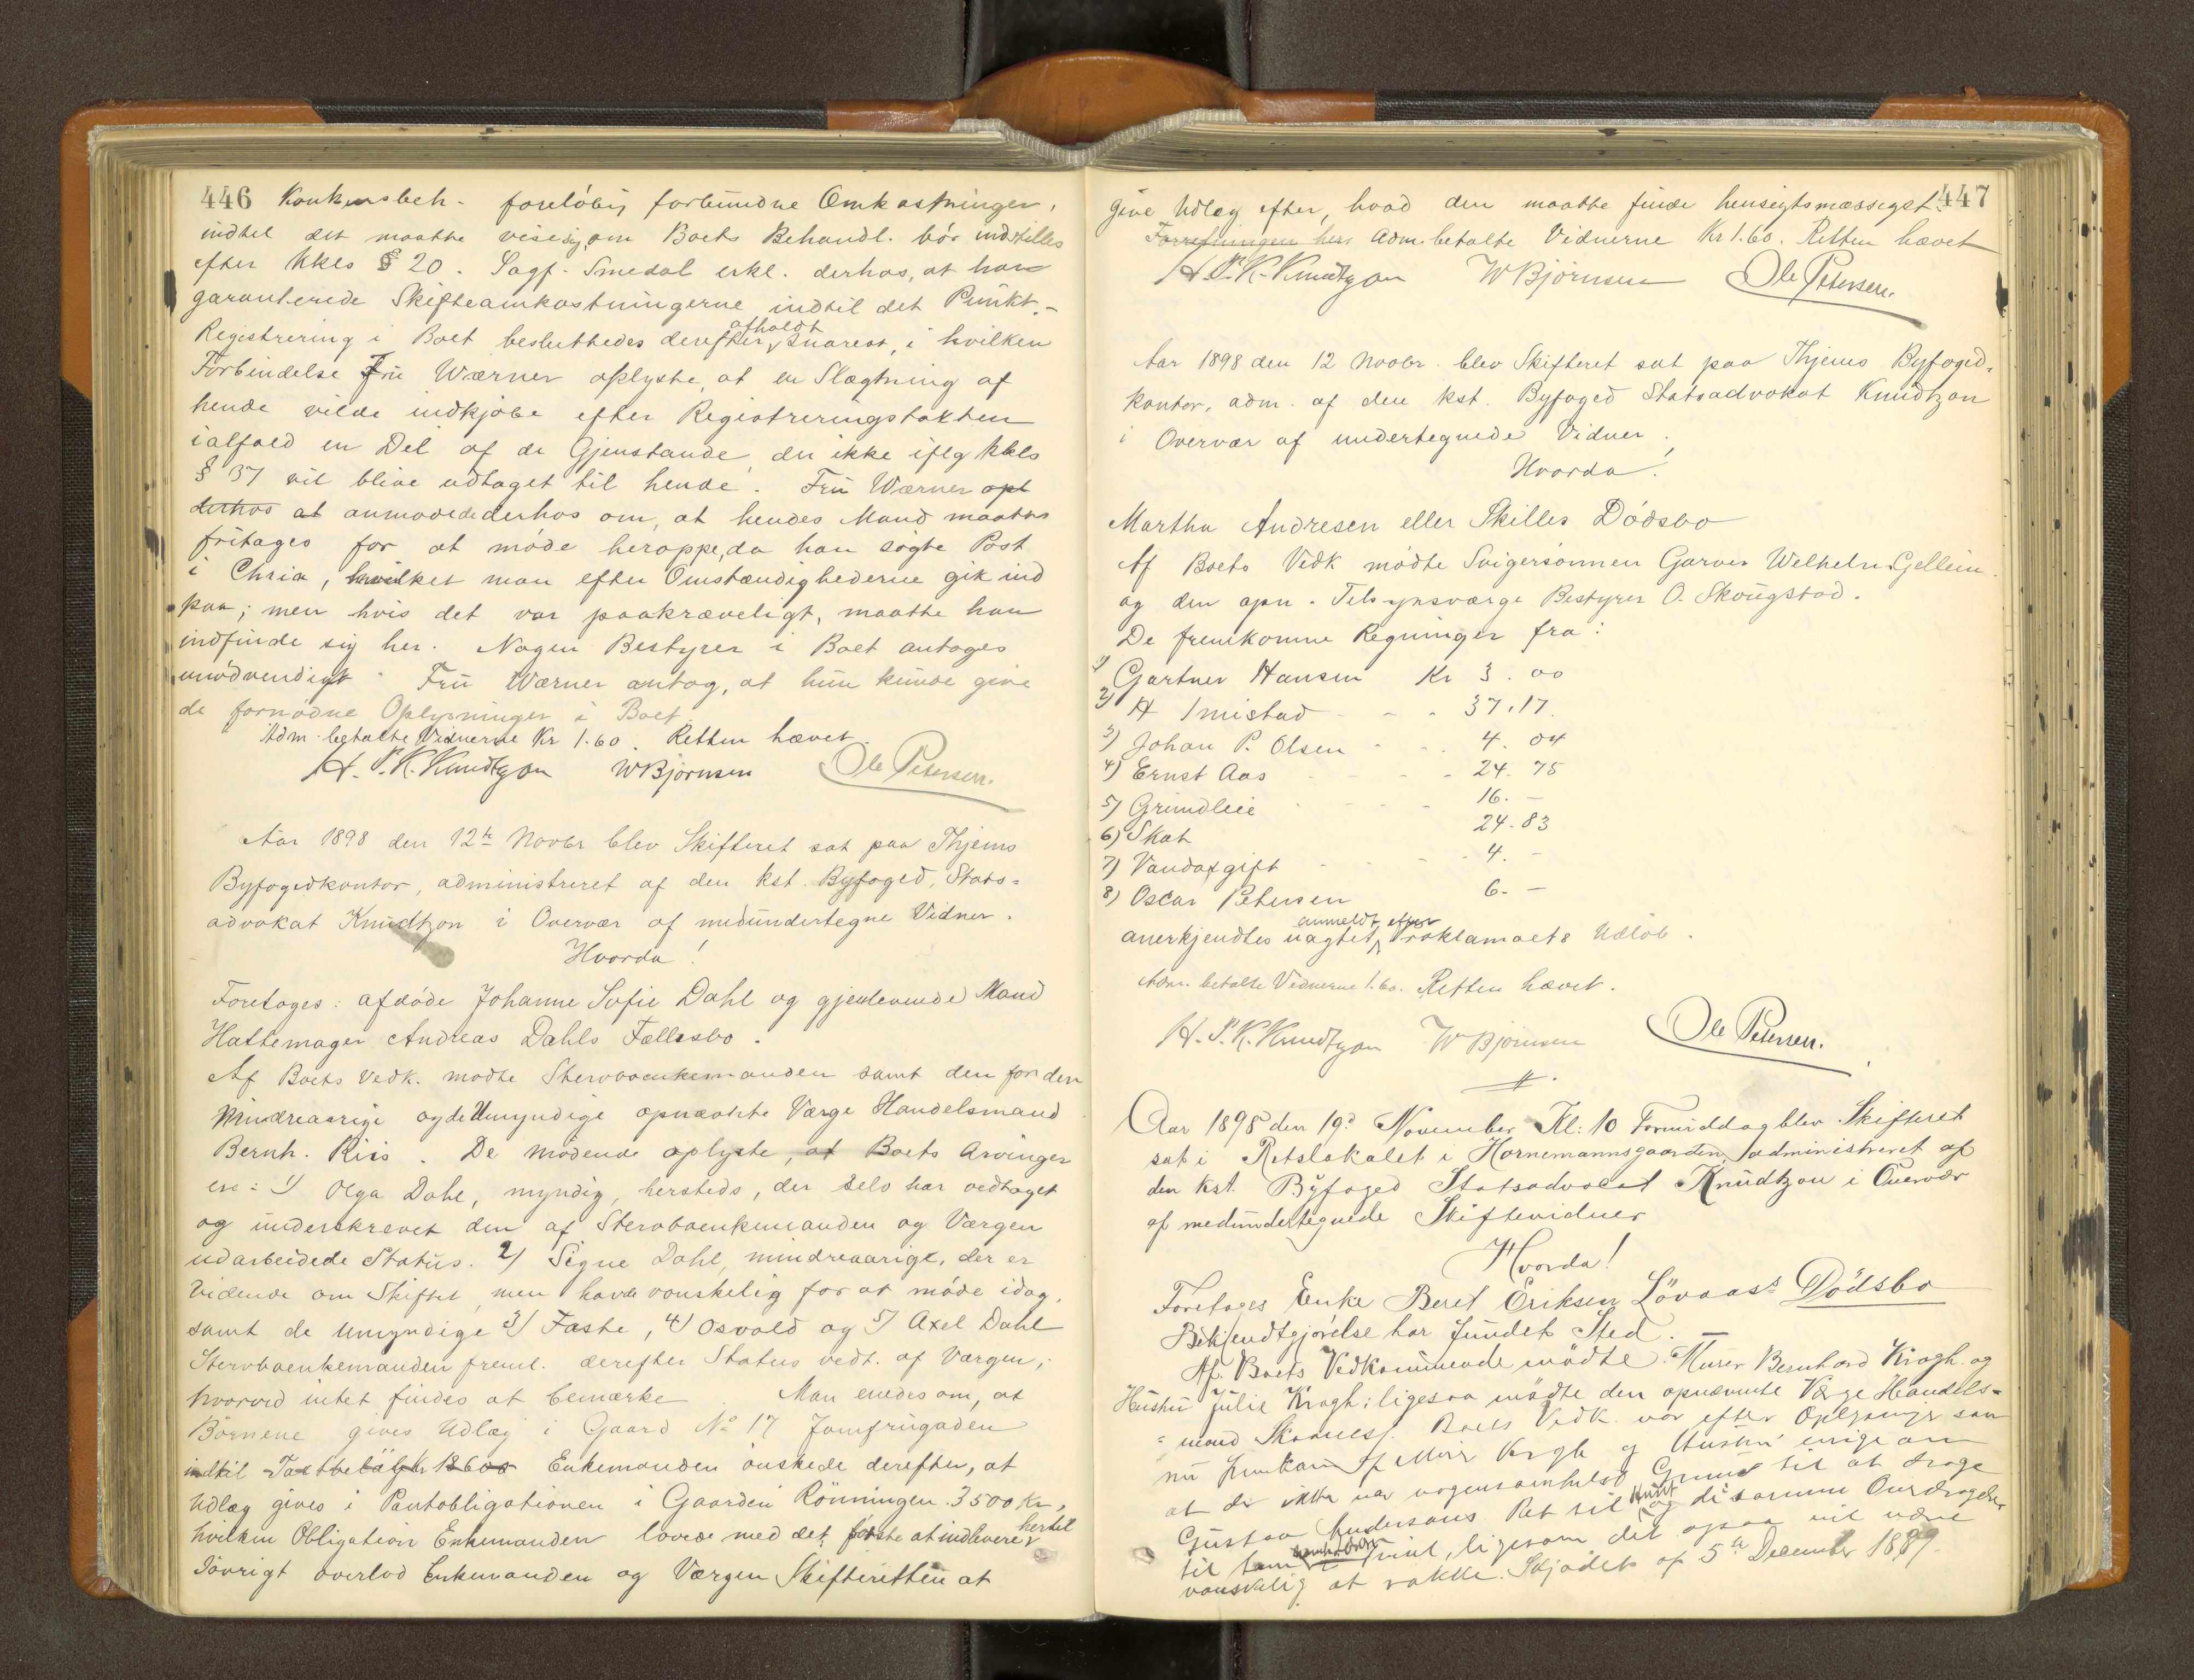 446 Konkursbeh. foreløbig forbundne Omkostninger,
indtil det maatte vise sig, om Boets Behandl. bør indstilles
efter Kkls § 20. Sagf. Smedal erkl. derhos, at han
garanterede Skifteomkostningerne indtil det Punkt.-
Registrering i Boet besluttedes derefter afholdt snarest, i hvilken
Forbindelse Fru Wærner oplyste, at en Slægtning af
hende vilde indkjøbe efter Registreringstakten
ialfald en Del af de Gjenstande, der ikke iflg Kkls
§ 37 vil blive udtaget til hende. Fru Wærner opl
derhos at anmodede derhos om, at hendes Mand maatte
fritages for at møde heroppe, da han søgte Post
i Chria, hvilket man efter Omstændighederne gik ind
paa; men hvis det var paakræveligt, maatte han
indfinde sig her. Nogen Bestyrer i Boet antoges
unødvendigt. Fru Wærner antog, at hun kunde give
de fornødne Oplysninger i Boet.
Adm. betalte Vidnerne Kr 1.60. Retten hævet
H. P. K. Knudtzon W Bjørnsen Ole Petersen.
Aar 1898 den 12te Novbr blev Skifteret sat paa Thjems
Byfogedkontor, administreret af den kst. Byfoged, Stats=
advokat Knudtzon i Overvær af medundertegne Vidner.
Hvorda!
Foretoges: afdøde Johanne Sofie Dahl og gjenlevende Mand
Hattemager Andreas Dahls Fællesbo.
Af Boets Vedk. mødte Stervboenkemanden samt den for den
Mindreaarige og de Umyndige opnævnte Værge Handelsmand
Bernh. Riis. De mødende oplyste, at Boets Arvinger
ere: 1) Olga Dahl, myndig, hersteds, der selv har vedtaget
og underskrevet den af Stervboenkemanden og Værgen
udarbeidede Status. 2) Signe Dahl, mindreaarige, der er
vidende om Skiftet, men havde vanskelig for at møde idag,
samt de umyndige 3) Faste, 4) Osvald og 5) Axel Dahl
Stervboenkemanden freml. derefter Status vedt. af Værgen,
hvorved intet findes at bemærke Man enedes om, at
Børnene gives Udlæg i Gaard No 17 Jomfrugaden
indtil Taxtbeløb Kr 18600 Enkemanden ønskede derefter, at
Udlæg gives i Pantobligationen i Gaarden Rønningen 3500 Kr,
hvilken Obligation Enkemanden lovede med det første at indlevere hertil
Iøvrigt overlod Enkemanden og Værgen Skifteretten at
447
give Udlæg efter, hvad den maatte finde hensigtsmæssigst.
Forretningen her Adm. betalte Vidnerne Kr 1.60. Retten hævet
H. P. K. Knudtzon W Bjørnsen Ole Petersen.
Aar 1898 den 12 Novbr. blev Skifteret sat paa Thjems Byfoged-
kontor, adm. af den kst. Byfoged Statsadvokat Knudtzon
i Overvær af undertegnede Vidner.
Hvorda!
Martha Andresen eller Skilles Dødsbo
Af Boets Vedk mødte Svigersønnen Garver Welhelm Gellein
og den opn. Tilsynsværge Bestyrer O. Skougstad.
De fremkomne Regninger fra:
1) Gartner Hansen Kr 3.00
2) H Imistad - - - 37.17
3) Johan P. Olsen - - 4.04
4) Ernst Aas - - 24.75
5) Grundleie - - - 16.-
6) Skat 24.83
7) Vandafgift - - - 4.-
8) Oscar Petersen 6.-
anerkjendtes uagtet anmeldt efter Proklamaets Udløb.
Adm. betalte Vidnerne 1.60. Retten hævet.
H. P. K. Knudtzon W Bjørnsen Ole Petersen.
Aar 1898 den 19de November Kl: 10 Formiddag blev Skifteret
sat i Retslokalet i Hornemannsgaarden, administreret af
den kst. Byfoged Statsadvocat Knudtzon i Overvær
af medundertegnede Skiftevidner
Hvorda!
Foretoges Enke Beret Eriksen Løvaas's Dødsbo
Bekjendtgjørelse har fundet Sted.
Af Boets Vedkommende mødte Murer Bernhard Krogh og
Hustru Julie Krogh; ligesaa mødte den opnævnte Værge Handels=
=mand Boets Vedk var efter Oplysninger som
nu fremkom af Murer Krogh og Hustru enige om
at der ikke var nogensomhelst Grund til at drage
Gustav Andersens Ret til
til ligesom det ogsaa vil være
vanskelig at rokke. Skjødet af 5te December 1889.